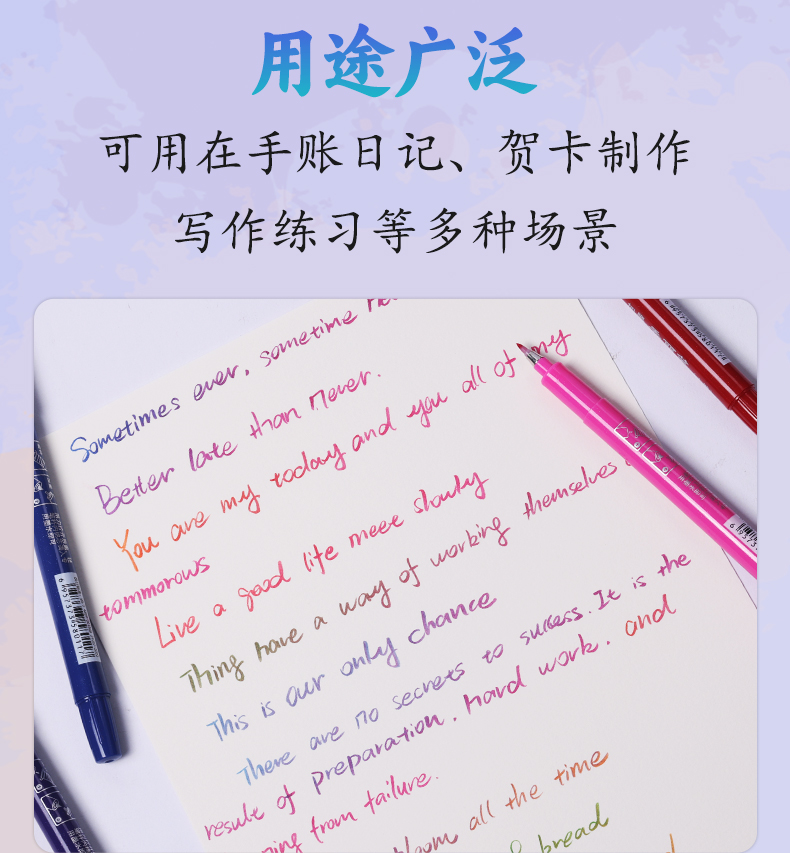 用途广泛
可用在手账日记、贺卡制作
写作练习等多种场景
Sometimes ever, sometime ne
Better late than never.
You are my today and you all of my
tommorows
Live a good life meet slowly
Thing have a way of working themselves
This is our only chance
There are no secrets to success. It is the
result of preparation. hard work. and
ning from failure.
bloom all the time
bread